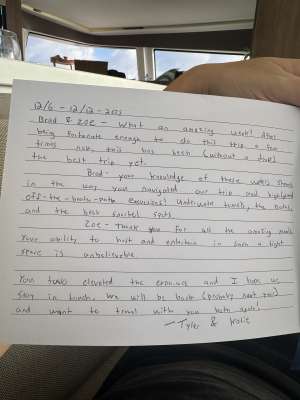 12/6 - 12/12 - 2025
Brad & Zoe - What an amazing week! After
being fortunate enough to do this trip a few
times now, this has been (without a doubt)
the best trip yet.
Brad - your knowledge of these waters shows
in the way you navigated our trip and highlighted
off-the-beaten-path excursions! Underwater tunnels, the
and the best snorkel spots.
Zoe - Thank you for all the amazing meals
Your ability to host and entertain in such a tight
space is unbelievable.
You two elevated the experience and I hope we
stay in touch. We will be back (probably next year)
and want to travel with you both again!
- Tyler & Kalie